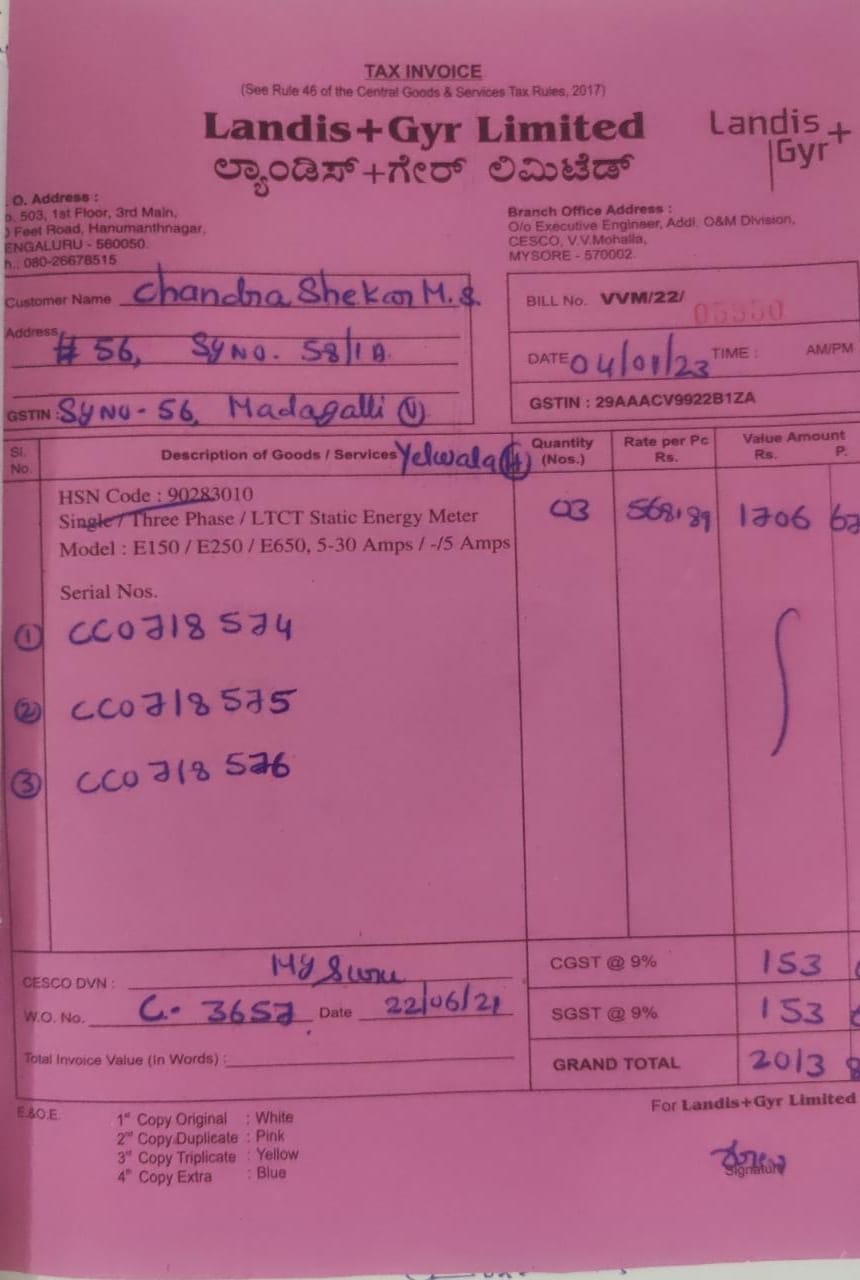 TAX INVOICE
(See Rule 46 of the Central Goods & Services Tax Rules, 2017)
Landis+Gyr Limited
Landis+
Gyr+
ಲ್ಯಾಂಡಿಸ್+ಗೇರ್ ಲಿಮಿಟೆಡ್
O. Address :
503, 1st Floor, 3rd Main,
Feet Road, Hanumanthnagar,
ENGALURU - 560050.
h.: 080-26678515
Branch Office Address :
O/o Executive Engineer, Addl. O&M Division,
CESCO, V.V.Mohalla,
MYSORE - 570002.
Customer Name Chandra Shekar M.S.
Address # 56, Sy No. 58/1A.
GSTIN : Sy No - 56, Madagalli (V)
Yelwala (H)
BILL No. VVM/22/ 05950
DATE 04/01/23 TIME : AM/PM
GSTIN : 29AAACV9922B1ZA
Sl. No. Description of Goods / Services Quantity (Nos.) Rate per Pc Rs. Value Amount Rs. P.
HSN Code : 90283010
Single / Three Phase / LTCT Static Energy Meter 03 568.89 1706 67
Model : E150 / E250 / E650, 5-30 Amps / -/5 Amps
Serial Nos.
1 CC0718574
2 CC0718575
3 CC0718576
CESCO DVN : Mysuru
W.O. No. C- 3657 Date 22/06/21
Total Invoice Value (In Words) :
CGST @ 9% 153
SGST @ 9% 153
GRAND TOTAL 2013
E.&O.E.
1st Copy Original : White
2nd Copy Duplicate : Pink
3rd Copy Triplicate : Yellow
4th Copy Extra : Blue
For Landis+Gyr Limited
Signature